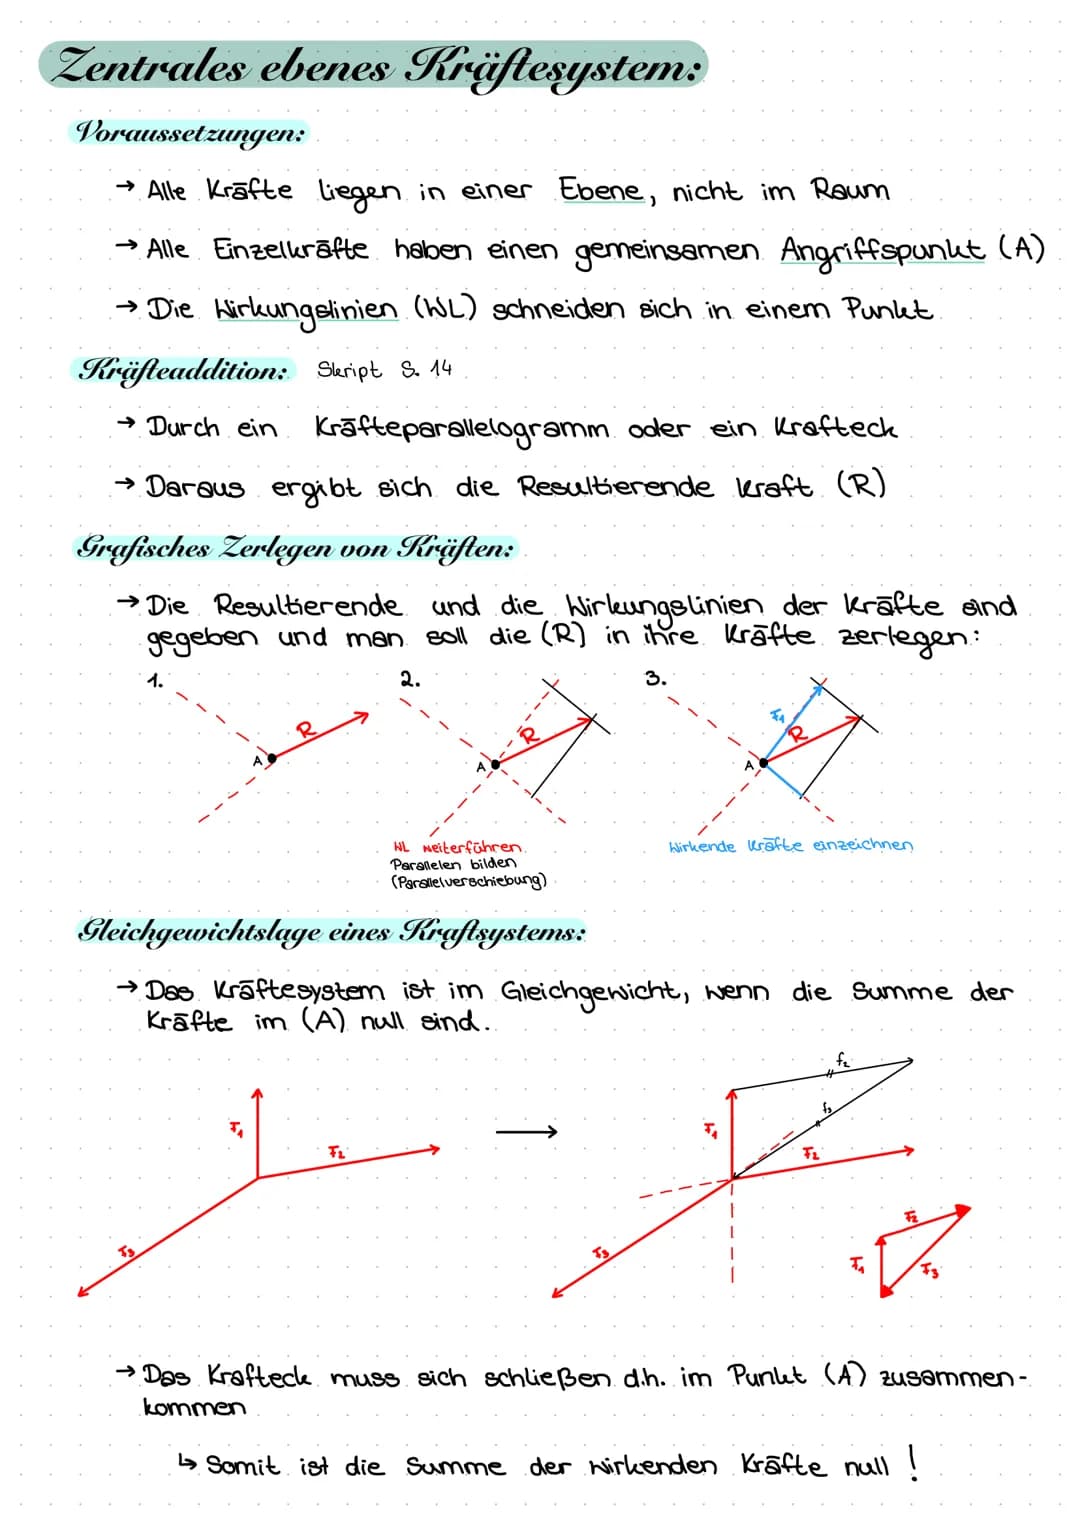 Zentrales ebenes Kräftesystem:
Voraussetzungen:
→ Alle Kräfte liegen in einer Ebene, nicht im Raum
→ Alle Einzelkräfte haben einen gemeinsamen Angriffspunkt (A)
→ Die Wirkungslinien (WL) schneiden sich in einem Punkt
Kräfteaddition: Skript S. 14
→ Durch ein Kräfteparallelogramm oder ein Krafteck
→ Daraus ergibt sich die Resultierende Kraft (R)
Grafisches Zerlegen von Kräften:
→ Die Resultierende und die Wirkungslinien der Kräfte sind
gegeben und man soll die (R) in ihre Kräfte zerlegen:
1. 2. 3.
A R
A R
A R F₁
WL weiterführen
Parallelen bilden
(Parallelverschiebung)
Wirkende Kräfte einzeichnen
Gleichgewichtslage eines Kraftsystems:
→ Das Kräftesystem ist im Gleichgewicht, wenn die Summe der
Kräfte im (A) null sind.
F₁ F₂ F₃
→
F₁ F₂ F₃ f₂ f₃
F₁ F₂ F₃
→ Das Krafteck muss sich schließen d.h. im Punkt (A) zusammen-
kommen
↳ Somit ist die Summe der wirkenden Kräfte null !